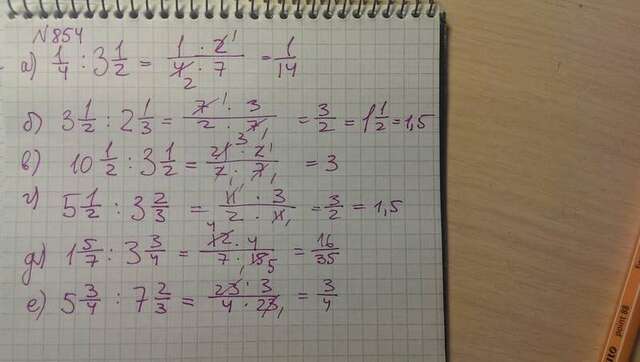 №854
а) 1/4 : 3 1/2 = (1 · 2)/(4 · 7) = 1/14
б) 3 1/2 : 2 1/3 = (7 · 3)/(2 · 7) = 3/2 = 1 1/2 = 1,5
в) 10 1/2 : 3 1/2 = (21 · 2)/(2 · 7) = 3
г) 5 1/2 : 3 2/3 = (11 · 3)/(2 · 11) = 3/2 = 1,5
д) 1 5/7 : 3 3/4 = (12 · 4)/(7 · 15) = 16/35
е) 5 3/4 : 7 2/3 = (23 · 3)/(4 · 23) = 3/4
point 88